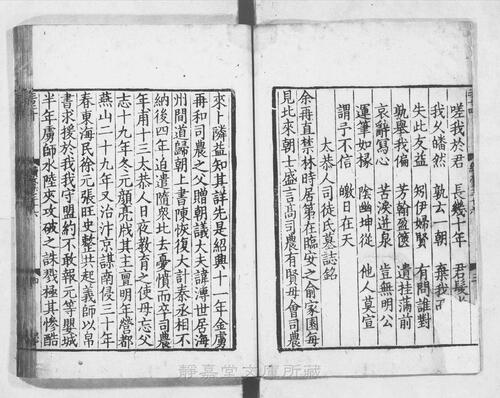 嗟我於君 長幾十年 君髮
我久皤然 孰云一朝 棄我
失此友益 矧伊婦賢 有問誰對
孰舉我偏 芳翰盈篋 遺挂滿前
哀辭冥心 苦淚迸泉 豈無明公
運筆如椽 陰幽坤從 他人莫宣
謂予不信 皦日在天
太恭人司徒氏墓誌銘
余再直禁林時居第在臨安之俞家園每
見北來朝士盛言尚司農有賢母會司農
來卜隣益知其詳先是紹興十一年金虜
再和司農之父贈朝議大夫諱溥世居海
州間道歸朝上書陳恢復大計秦丞相不
納後四年迫遣隨衆北去憂憤而卒司農
年甫十三太恭人日夜教育之使毋忘父
志十九年冬元顏亮戕其主亶明年營都
燕山二十九年又治汴京謀南侵三十年
春東海民徐元張旺史整共起義師以帛
書求援於我我守盟約不敢報元等嬰城
半年虜師水陸夾攻破之誅戮極其慘酷
静嘉堂文庫所蔵